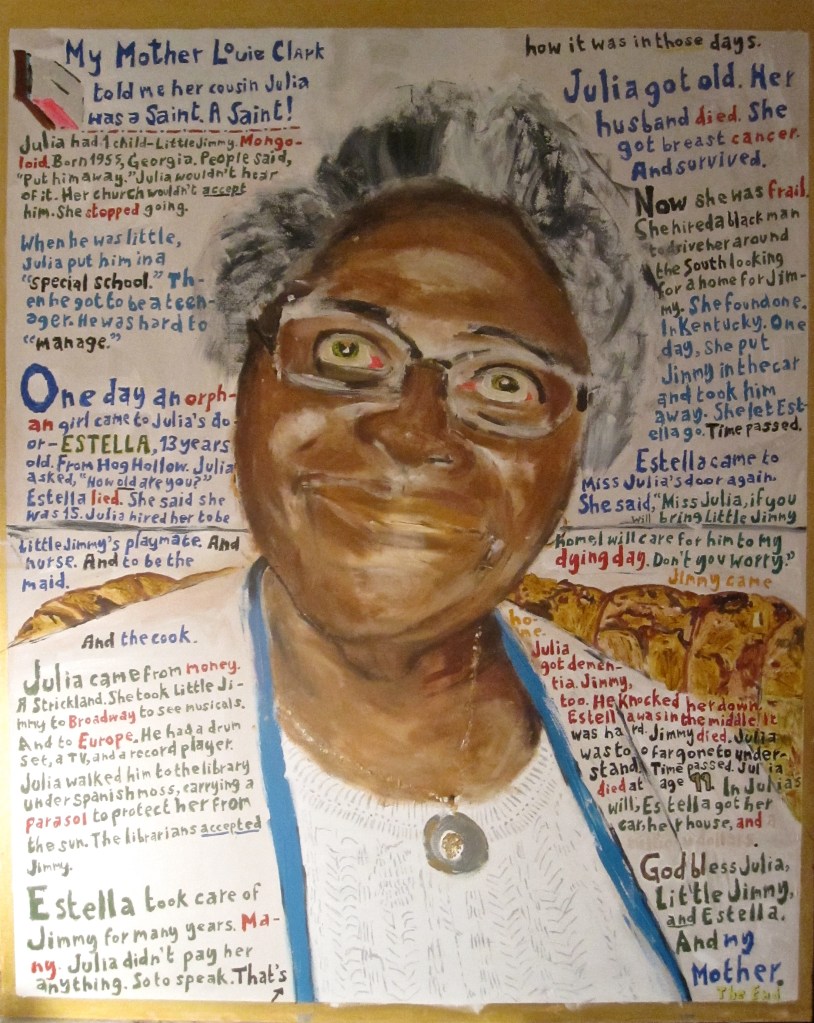 My Mother Louie Clark
told me her cousin Julia
was a Saint. A Saint!
Julia had 1 child-Little Jimmy. Mongo-
loid. Born 1955, Georgia. People said,
"Put him away." Julia wouldn't hear
of it. Her church wouldn't accept
him. She stopped going.
When he was little,
Julia put him in a
"special school." Th-
en he got to be a teen-
ager. He was hard to
"manage."
One day an orph-
an girl came to Julia's do-
or-ESTELLA, 13 years
old. From Hog Hollow. Julia
asked, "How old are you?"
Estella lied. She said she
was 15. Julia hired her to be
Little Jimmy's playmate. And
nurse. And to be the
maid.
And the cook.
Julia came from money.
A Strickland. She took Little Ji-
mmy to Broadway to see musicals.
And to Europe. He had a drum
set, a TV, and a record player.
Julia walked him to the library
under spanish moss, carrying a
parasol to protect her from
the sun. The librarians accepted
Jimmy.
Estella took care of
Jimmy for many years. Ma-
ny. Julia didn't pay her
anything. So to speak. That's
how it was in those days.
Julia got old. Her
husband died. She
got breast cancer.
And survived.
Now she was frail.
She hired a black man
to drive her around
the South looking
for a home for Jim-
my. She found one.
In Kentucky. One
day, she put
Jimmy in the car
and took him
away. She let Est-
ella go. Time passed.
Estella came to
Miss Julia's door again.
She said, "Miss Julia, if you
will bring Little Jimmy
home I will care for him to my
dying day. Don't you worry."
Jimmy came
ho-
me.
Julia
got demen-
tia. Jimmy,
too. He knocked her down.
Estella was in the middle. It
was hard. Jimmy died. Julia
was too far gone to under-
stand. Time passed. Julia
died at age 99. In Julias
will, Estella got her
car, her house, and
God bless Julia,
Little Jimmy,
and Estella.
And my
Mother.
The End